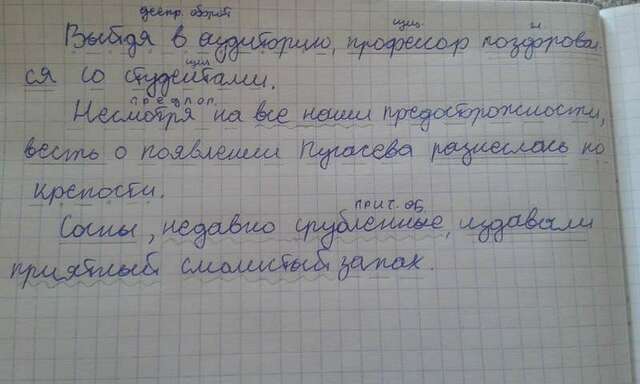 деепр. оборот
Выйдя в аудиторию, профессор поздорова-
ся со студентами.
предлог
Несмотря на все наши предосторожности,
весть о появлении Пугачева разнеслась по
крепости.
прич. об.
Сосны, недавно срубленные, издавали
приятный смолистый запах.